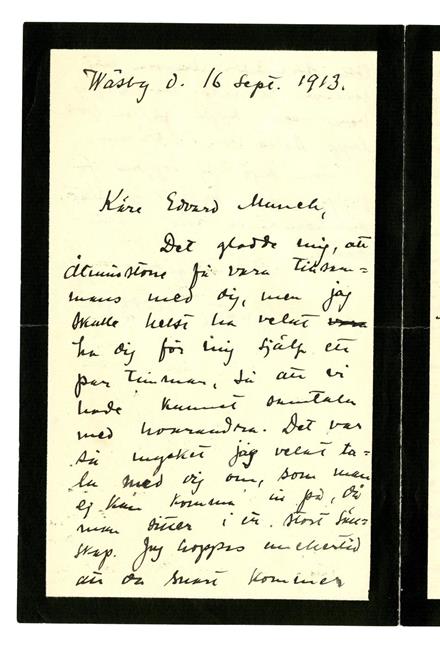 Wäsby d. 16 Sept. 1913.
Käre Edvard Munch,
Det gladde mig, att
åtminstone få vara tillsam=
mans med dig, men jag
skulle helst ha velat vara
ha dig för mig själf ett
par timmar, så att vi
hade kunnat samtala
med hvarandra. Det var
så mycket jag velat ta=
la med dig om, som man
ej kan komma in på, då
man sitter i ett stort säll=
skap. Jag hoppas emellertid
att du snart kommer